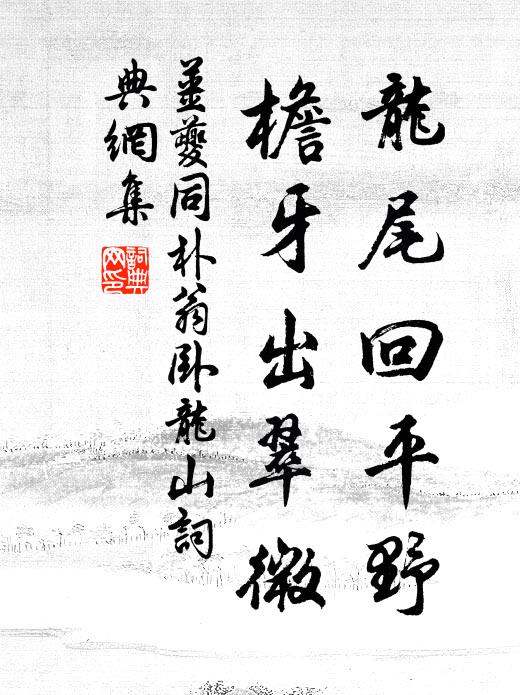 龍尾回平野
檐牙出翠微
姜夔同朴翁卧龍山詞
典網集
詞典網印